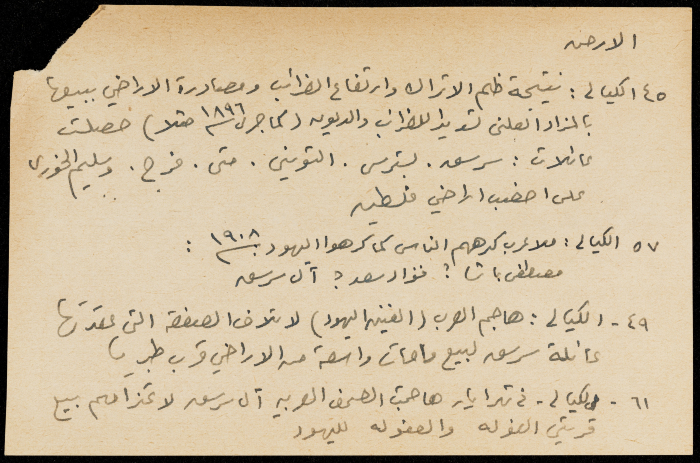 الارض
٤٥ الكيالي : نتيجة ظلم الاتراك وارتفاع الضرائب ومصادرة الاراضي ببيعها
بالمزاد العلني تسديدا للضرائب والديون (كما جرى سنة ١٨٩٦ مثلا) حصلت
عائلات : سرسق . بسترس . التويني . متى . فرح . وسليم الخوري
على اخصب اراضي فلسطين
٥٧ الكيالي : ملاء عرب كرههم الناس كما كرهوا اليهود سنة ١٩٠٨ :
مصطفى باشا ؟ فؤاد سعد ؟ آل سرسق
٤٩ - الكيالي : هاجم العرب (الفينة اليهود) لاتلاف الصفقة التي عقدتها
عائلة سرسق لبيع مساحات واسعة من الاراضي قرب طبريا
٦١ - الكيالي - في شهر ايار هاجمت الصحف العربية آل سرسق لاعتزامهم بيع
قريتي الفوله والعفوله لليهود